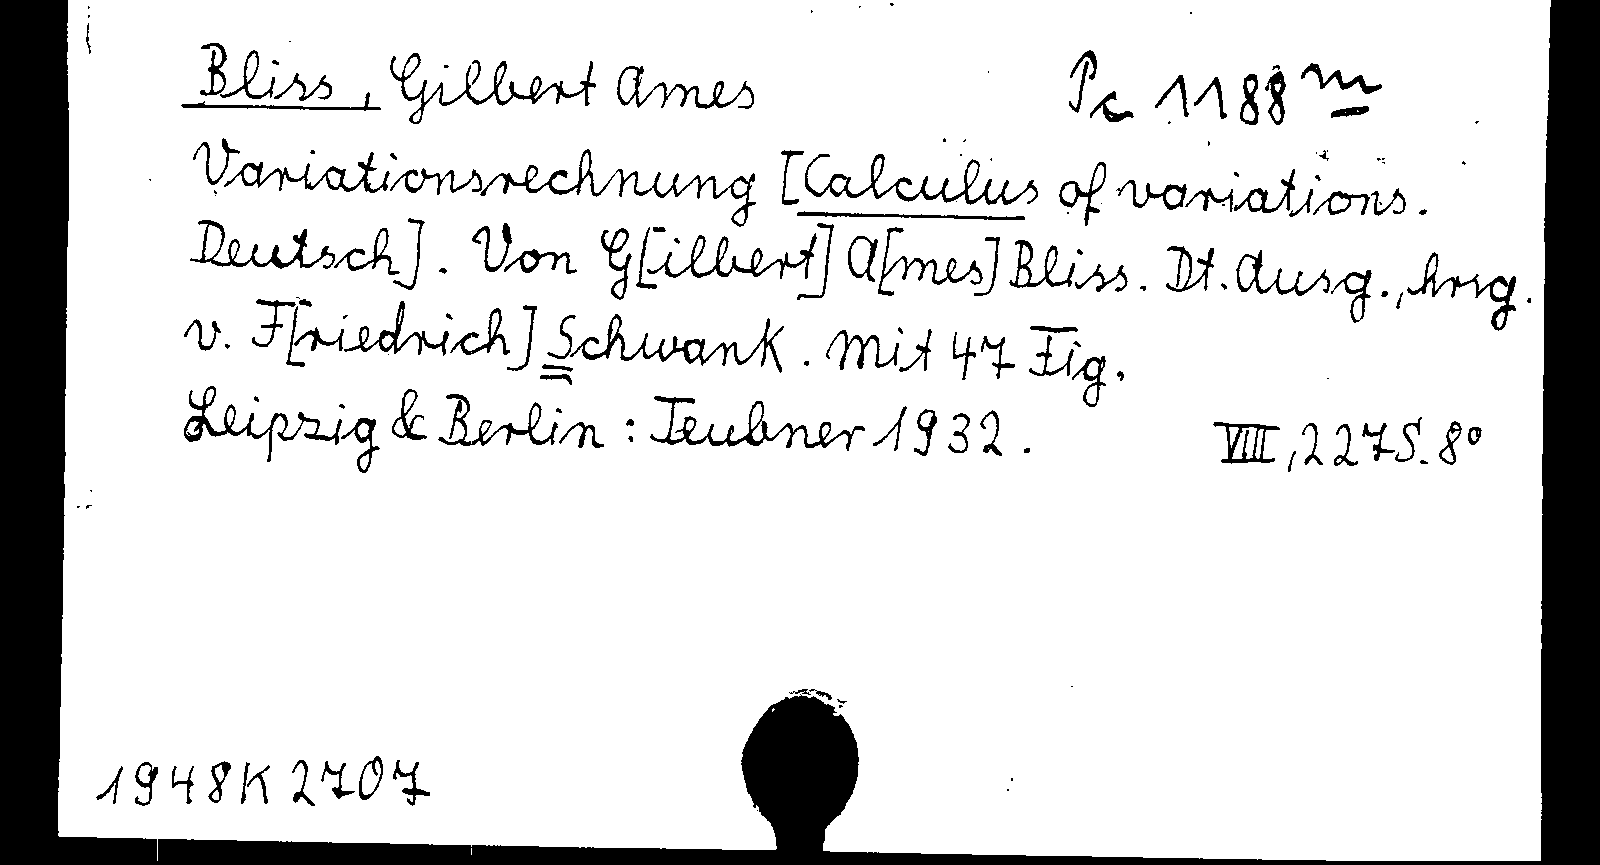 Bliss, Gilbert Ames Pc 1188 m
Variationsrechnung [Calculus of variations.
Deutsch]. Von G[ilbert] A[mes] Bliss. Dt. Ausg., hrsg.
v. F[riedrich] Schwank. Mit 47 Fig.
Leipzig & Berlin: Teubner 1932. VIII, 227 S. 8°
1948 K 2707